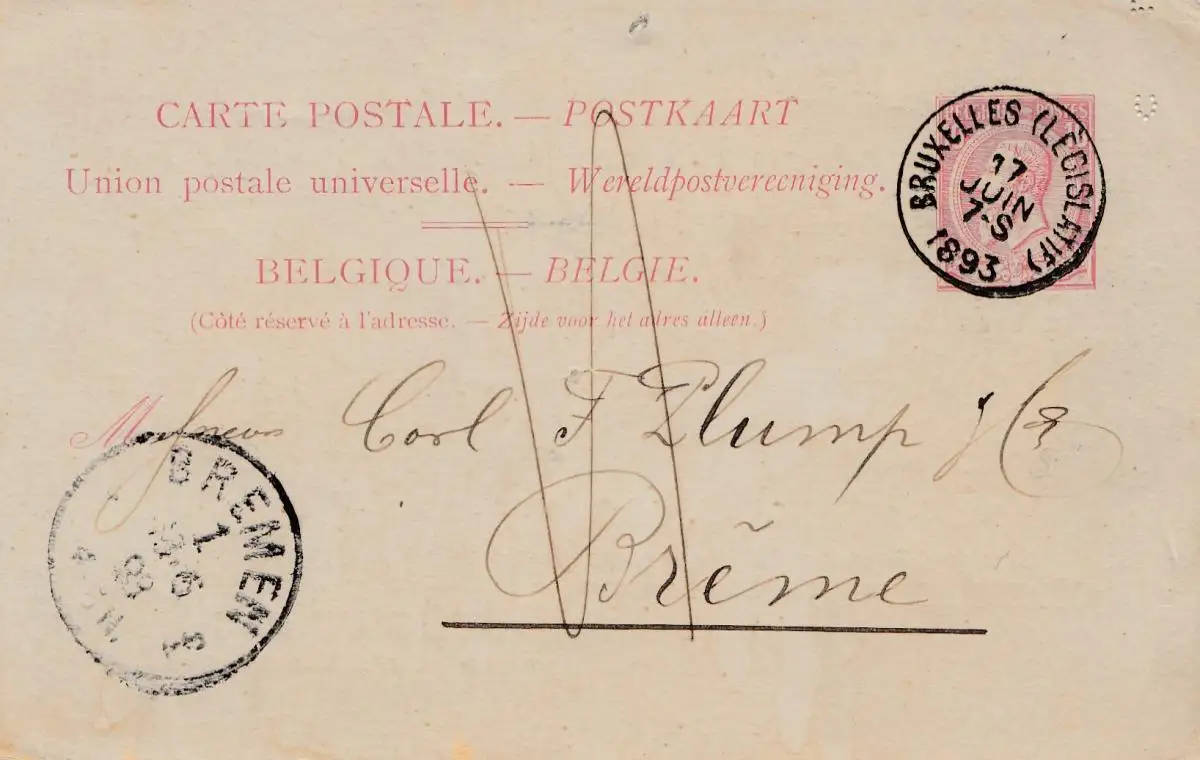 CARTE POSTALE. — POSTKAART
Union postale universelle. — Wereldpostvereeniging.
BELGIQUE. — BELGIE.
(Côté réservé à l'adresse. — Zijde voor het adres alleen.)
BRUXELLES (LÉGISLATIF)
17
JUIN
7-S
1893
Carl F Plump & Co
Brême
BREMEN 1